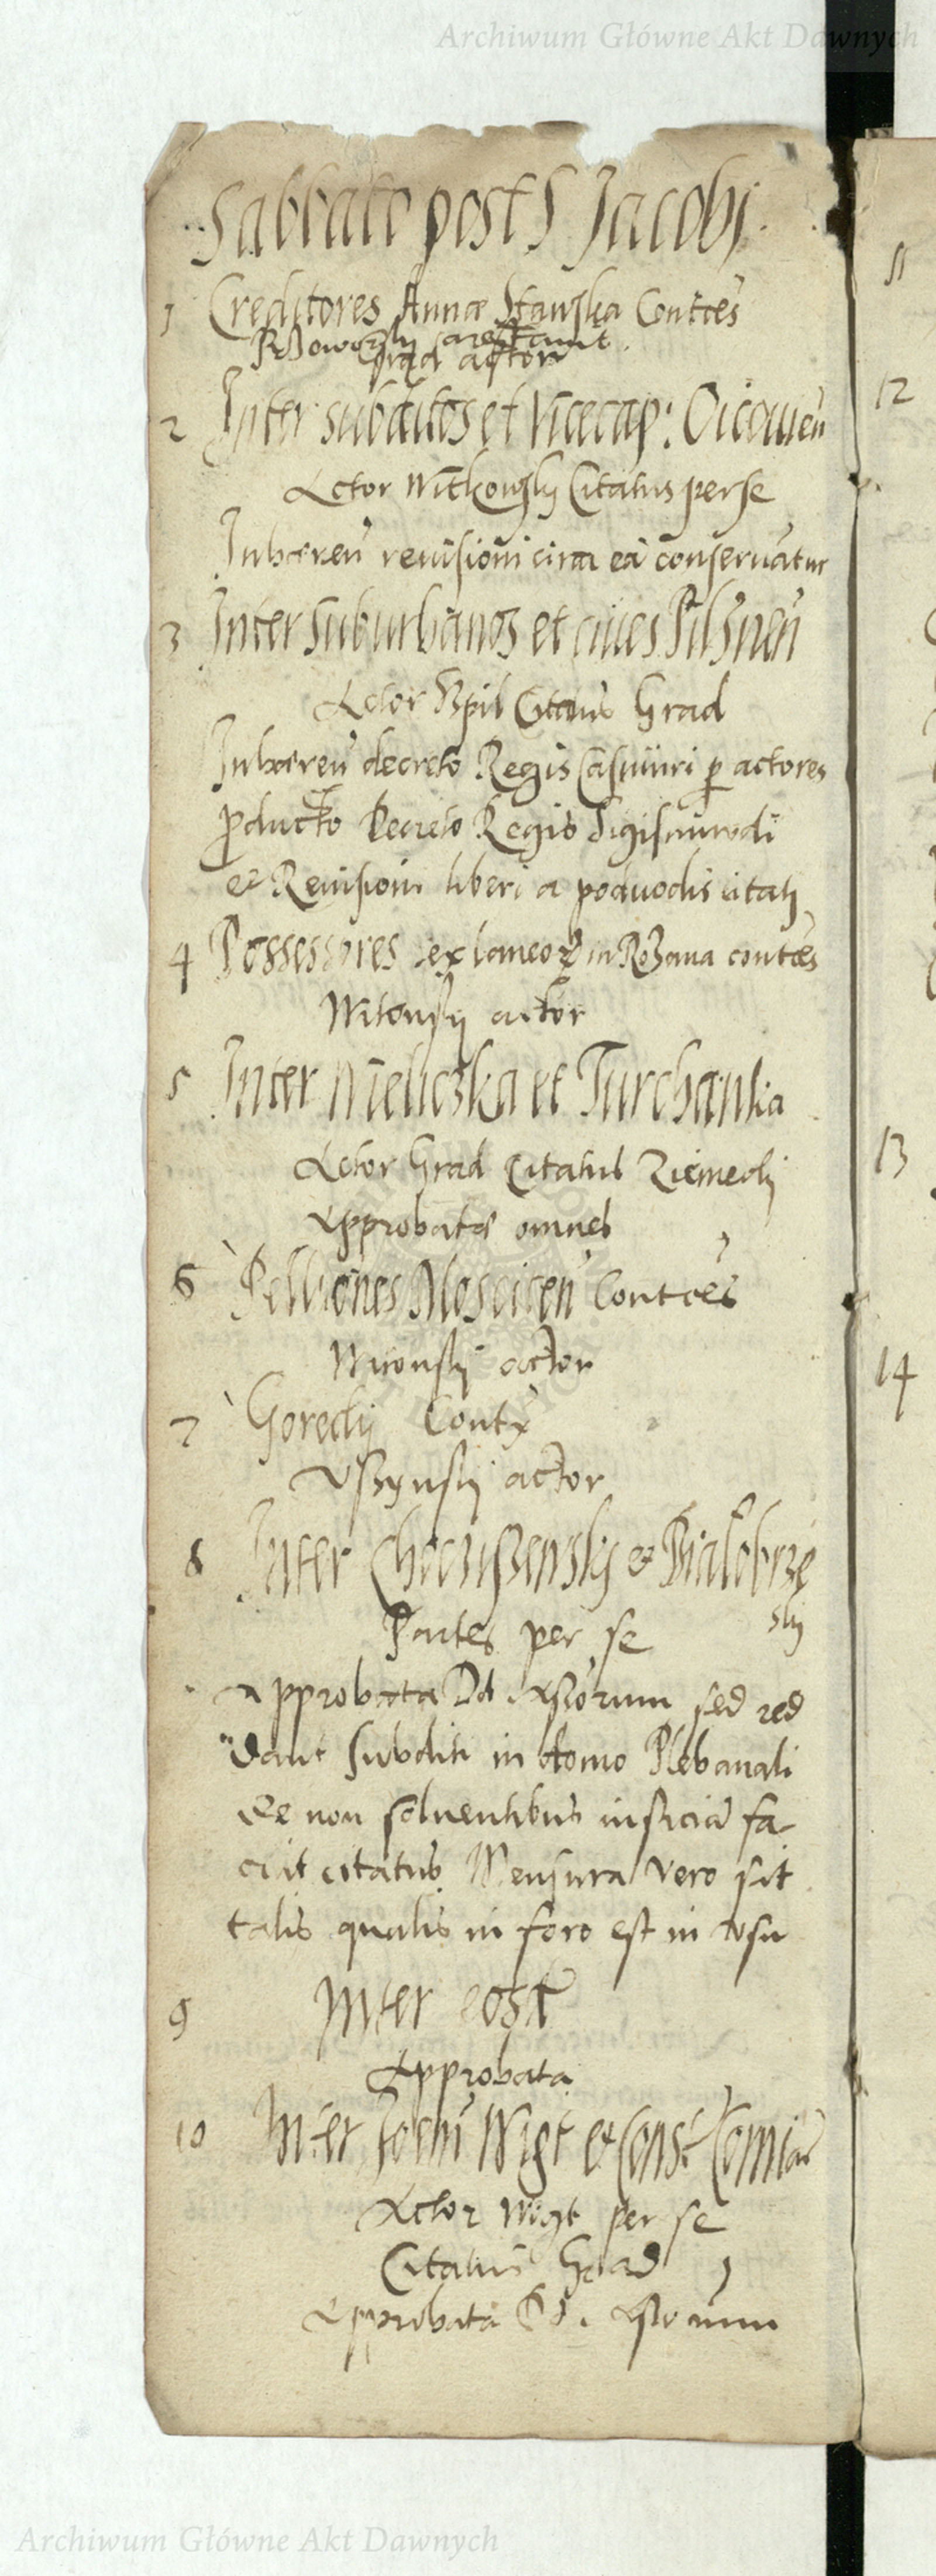 Archiwum Główne Akt Dawnych
Sabbato post S Jacobi
1 Creditores Annæ Stawska Contces
actor
2 Inter subditos et Vicecap: Oicouien
Actor Witkowskj Citatus per se
Inhæren reuisioni circa ea conseruatur
3 Inter suburbanos et ciues Pilsnen
Actor Spil Citatus Grad
Inhæren decreto Regis Casimiri per actores
producto Decreto Regis Sigismundi
et Reuisioni liberi a poduodis citati
4 Possessores ex laneor in Rozana contces
Witowsky actor
5 Inter Wieliczka et Turchanka
Actor Grad Citatus Ziemecky
Approbatæ omnes
6 Pelliones Moscicen Contces
actor
7 Gorecky Contx
Vssynsky actor
8 Inter et Bialobrze
sky
Partes per se
Approbata DD. Assorum sed red
dant subditi in domo Plebanali
Et non soluentibus iusticiam fa
ciat citatus. Mensura vero sit
talis qualis in foro est in vsu
9 Inter eosd
Approbata
10 Inter Wigt et Const
Actor Wigt per se
Citatus Grad
Approbata DD. Assorum
11
12
13
14
Archiwum Główne Akt Dawnych